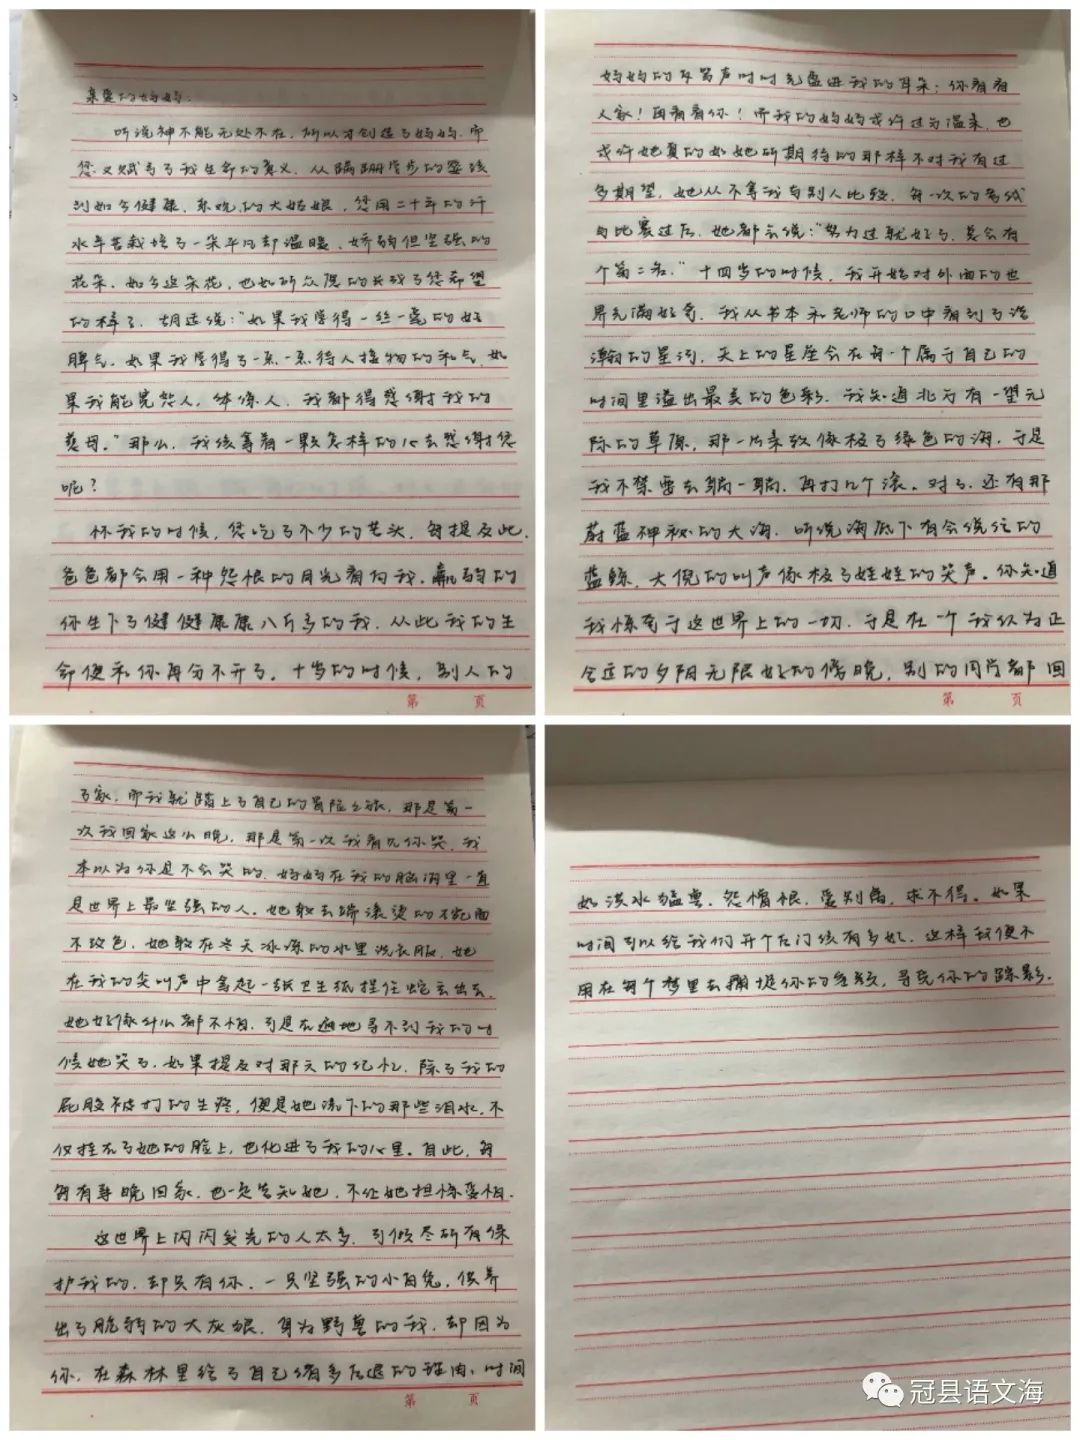 亲爱的妈妈:
听说神不能无处不在,所以才创造了妈妈,而
您又赋予了我生命的意义,从蹒跚学步的婴孩
到如今健康、乐观的大姑娘,您用二十年的汗
水辛苦栽培了一朵平凡却温暖、娇弱但坚强的
花朵。如今这朵花,也如所众愿的长成了您希望
的样子。胡适说:“如果我学得一丝一毫的好
脾气,如果我学得了一点一点待人接物的和气,如
果我能宽恕人,体谅人,我都得感谢我的
慈母。”那么,我该拿着一颗怎样的心去感谢您
呢?
怀我的时候,您吃了不少的苦头,每提及此,
爸爸都会用一种怨恨的目光看向我,羸弱的
你生下了健健康康八斤多的我,从此我的生
命便和你再分不开了。十岁的时候,别人的
第 页
妈妈的斥骂声时时充盈进我的耳朵:你看看
人家!再看看你!而我的妈妈或许过为温柔,也
或许她真的如她所期待的那样不对我有过
多期望,她从不拿我与别人比较,每一次的考试
与比赛过后,她都会说:“努力过就好了,总会有
个第二名。”十四岁的时候,我开始对外面的世
界充满好奇,我从书本和老师的口中看到了浩
瀚的星河,天上的星座会在每一个属于自己的
时间里溢出最美的色彩,我知道北方有一望无
际的草原,那一片景致像极了绿色的海,于是
我不禁要去躺一躺,再打几个滚。对了,还有那
蔚蓝神秘的大海,听说海底下有会说话的
蓝鲸,大倪的叫声像极了娃娃的笑声。你知道
我惊奇于这世界上的一切,于是在一个我认为正
合适的夕阳无限好的傍晚,别的同学都回
第 页
了家,而我就踏上了自己的冒险之旅,那是第一
次我回家这么晚,那是第一次我看见你哭,我
本以为你是不会哭的,妈妈在我的脑海里一直
是世界上最坚强的人。她敢去端滚烫的
不改色,她敢在冬天冰冻的水里洗衣服,她
在我的尖叫声中拿起一张卫生纸捏住蛇去出去,
她好像什么都不怕,可是在遍地寻不到我的时
候她哭了,如果提及对那天的记忆,除了我的
屁股被打的生疼,便是她流下的那些泪水,不
仅挂在了她的脸上,也化进了我的心里。自此,每
每有事晚回家,也一定告知她,不让她担惊受怕。
这世界上闪闪发光的人太多,可倾尽所有保
护我的,却只有你,一只坚强的小白兔,供养
出了脆弱的大灰狼,身为野兽的我,却因为
你,在森林里给了自己诸多后退的理由,时间
第 页
如洪水猛兽,怨憎恨,爱别离,求不得。如果
时间可以给我们开个后门该有多好,这样我便不
用在每个梦里去捕捉你的,寻觅你的踪影。
冠县语文海